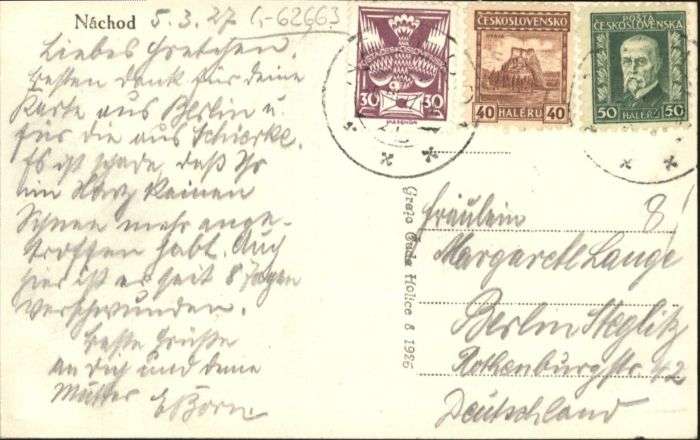 Náchod 5.3.27
Liebes Gretchen.
Besten Dank für deine
Karte aus Berlin u.
für die aus Schierke.
Es ist schade, daß Ihr
im Harz keinen
Schnee mehr ange-
troffen habt. Auch
hier ist er seit 8 Tagen
verschwunden.
Beste Grüße
an dich und deine
Mutter EBorn.
30 30
ČESKOSLOVENSKO
40 HALÉŘŮ 40
POŠTA
ČESKOSLOVENSKÁ
50 HALÉŘŮ 50
Grafo Čuda Holice 8 1926
Fräulein
Margarete Lange
Berlin Steglitz
Rothenburgstr. 42
Deutschland
8!